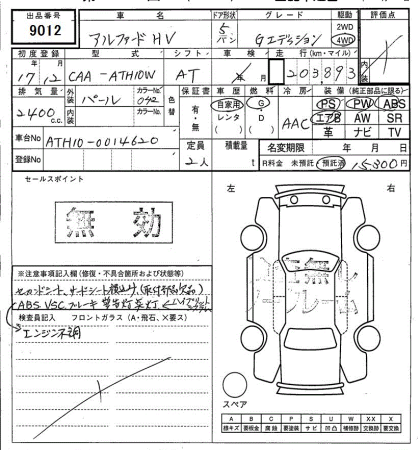 出品番号 車名 ドア形状 グレード 駆動 評価点
9012 アルファード HV 5 バン Gエディション 2WD 4WD
初度登録 型式 シフト 車検 走行(km・マイル) 内装
17 12 CAA-ATH10W AT 203893
排気量 外装 パール カラーNo. 042 色替 保証書 車歴 燃料 冷房 装備(純正部品に限る)
2400 c.c. 内装 カラーNo. 有・無 自家用 レンタ ( ) G・D ( ) AAC PS PW ABS
エアB AW SR
革 ナビ TV
車台No ATH10-0014620 定員 積載量 名変期限 年 月 日
登録No 2人 t R料金 未預託 預託済 15,800円
セールスポイント
無効
左 右
※注意事項記入欄(修復・不具合箇所および状態等)
ABS VSC ブレーキ
検査員記入 フロントガラス(A・飛石、X要ス)
エンジン不調
スペア
A B C P S U W XX X
線キズ 要板金 腐蝕 要塗装 サビ 凹凸 補修跡 交換跡 要交換